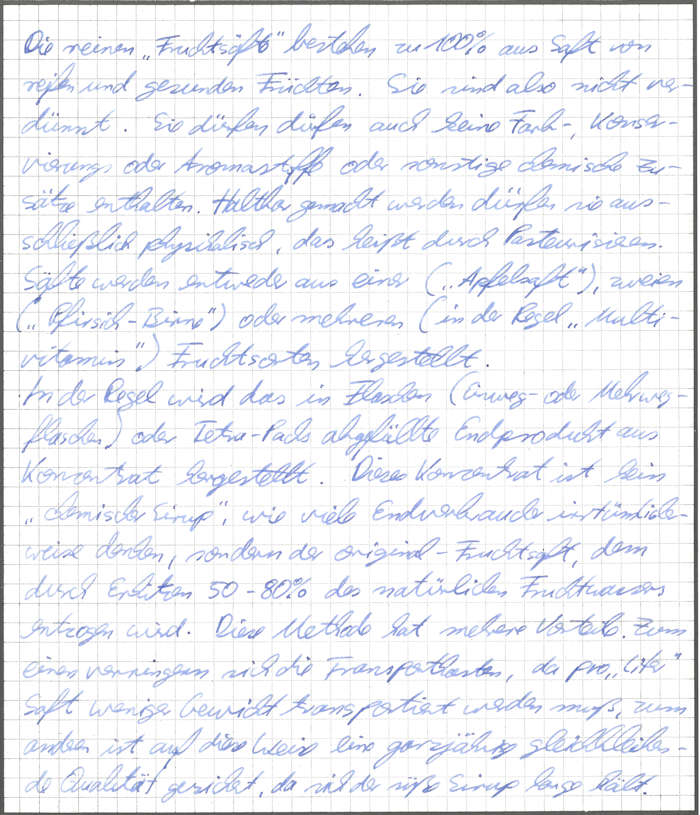 Die reinen „Fruchtsäfte" bestehen zu 100% aus Saft von
reifen und gesunden Früchten. Sie sind also nicht ver-
dünnt. Sie dürfen dürfen auch keine Farb-, Konser-
vierungs oder Aromastoffe oder sonstige chemische Zu-
sätze enthalten. Haltbar gemacht werden dürfen sie aus-
schließlich physikalisch, das heißt durch Pasteurisieren.
Säfte werden entweder aus einer („Apfelsaft"), zweien
(„Pfirsich-Birne") oder mehreren (in der Regel „Multi-
vitamin") Fruchtsorten hergestellt.
In der Regel wird das in Flaschen (Einweg- oder Mehrweg-
flaschen) oder Tetra-Packs abgefüllte Endprodukt aus
Konzentrat hergestellt. Dieses Konzentrat ist kein
„chemischer Sirup", wie viele Endverbraucher irrtümlicher-
weise denken, sondern der original-Fruchtsaft, dem
durch Erhitzen 50-80% des natürlichen Fruchtwassers
entzogen wird. Diese Methode hat mehrere Vorteile. Zum
einen verringern sich die Transportkosten, da pro „Liter"
Saft weniger Gewicht transportiert werden muß, zum
anderen ist auf diese Weise eine ganzjährig gleichbleiben-
de Qualität gesichert, da sich der süße Sirup lange hält.